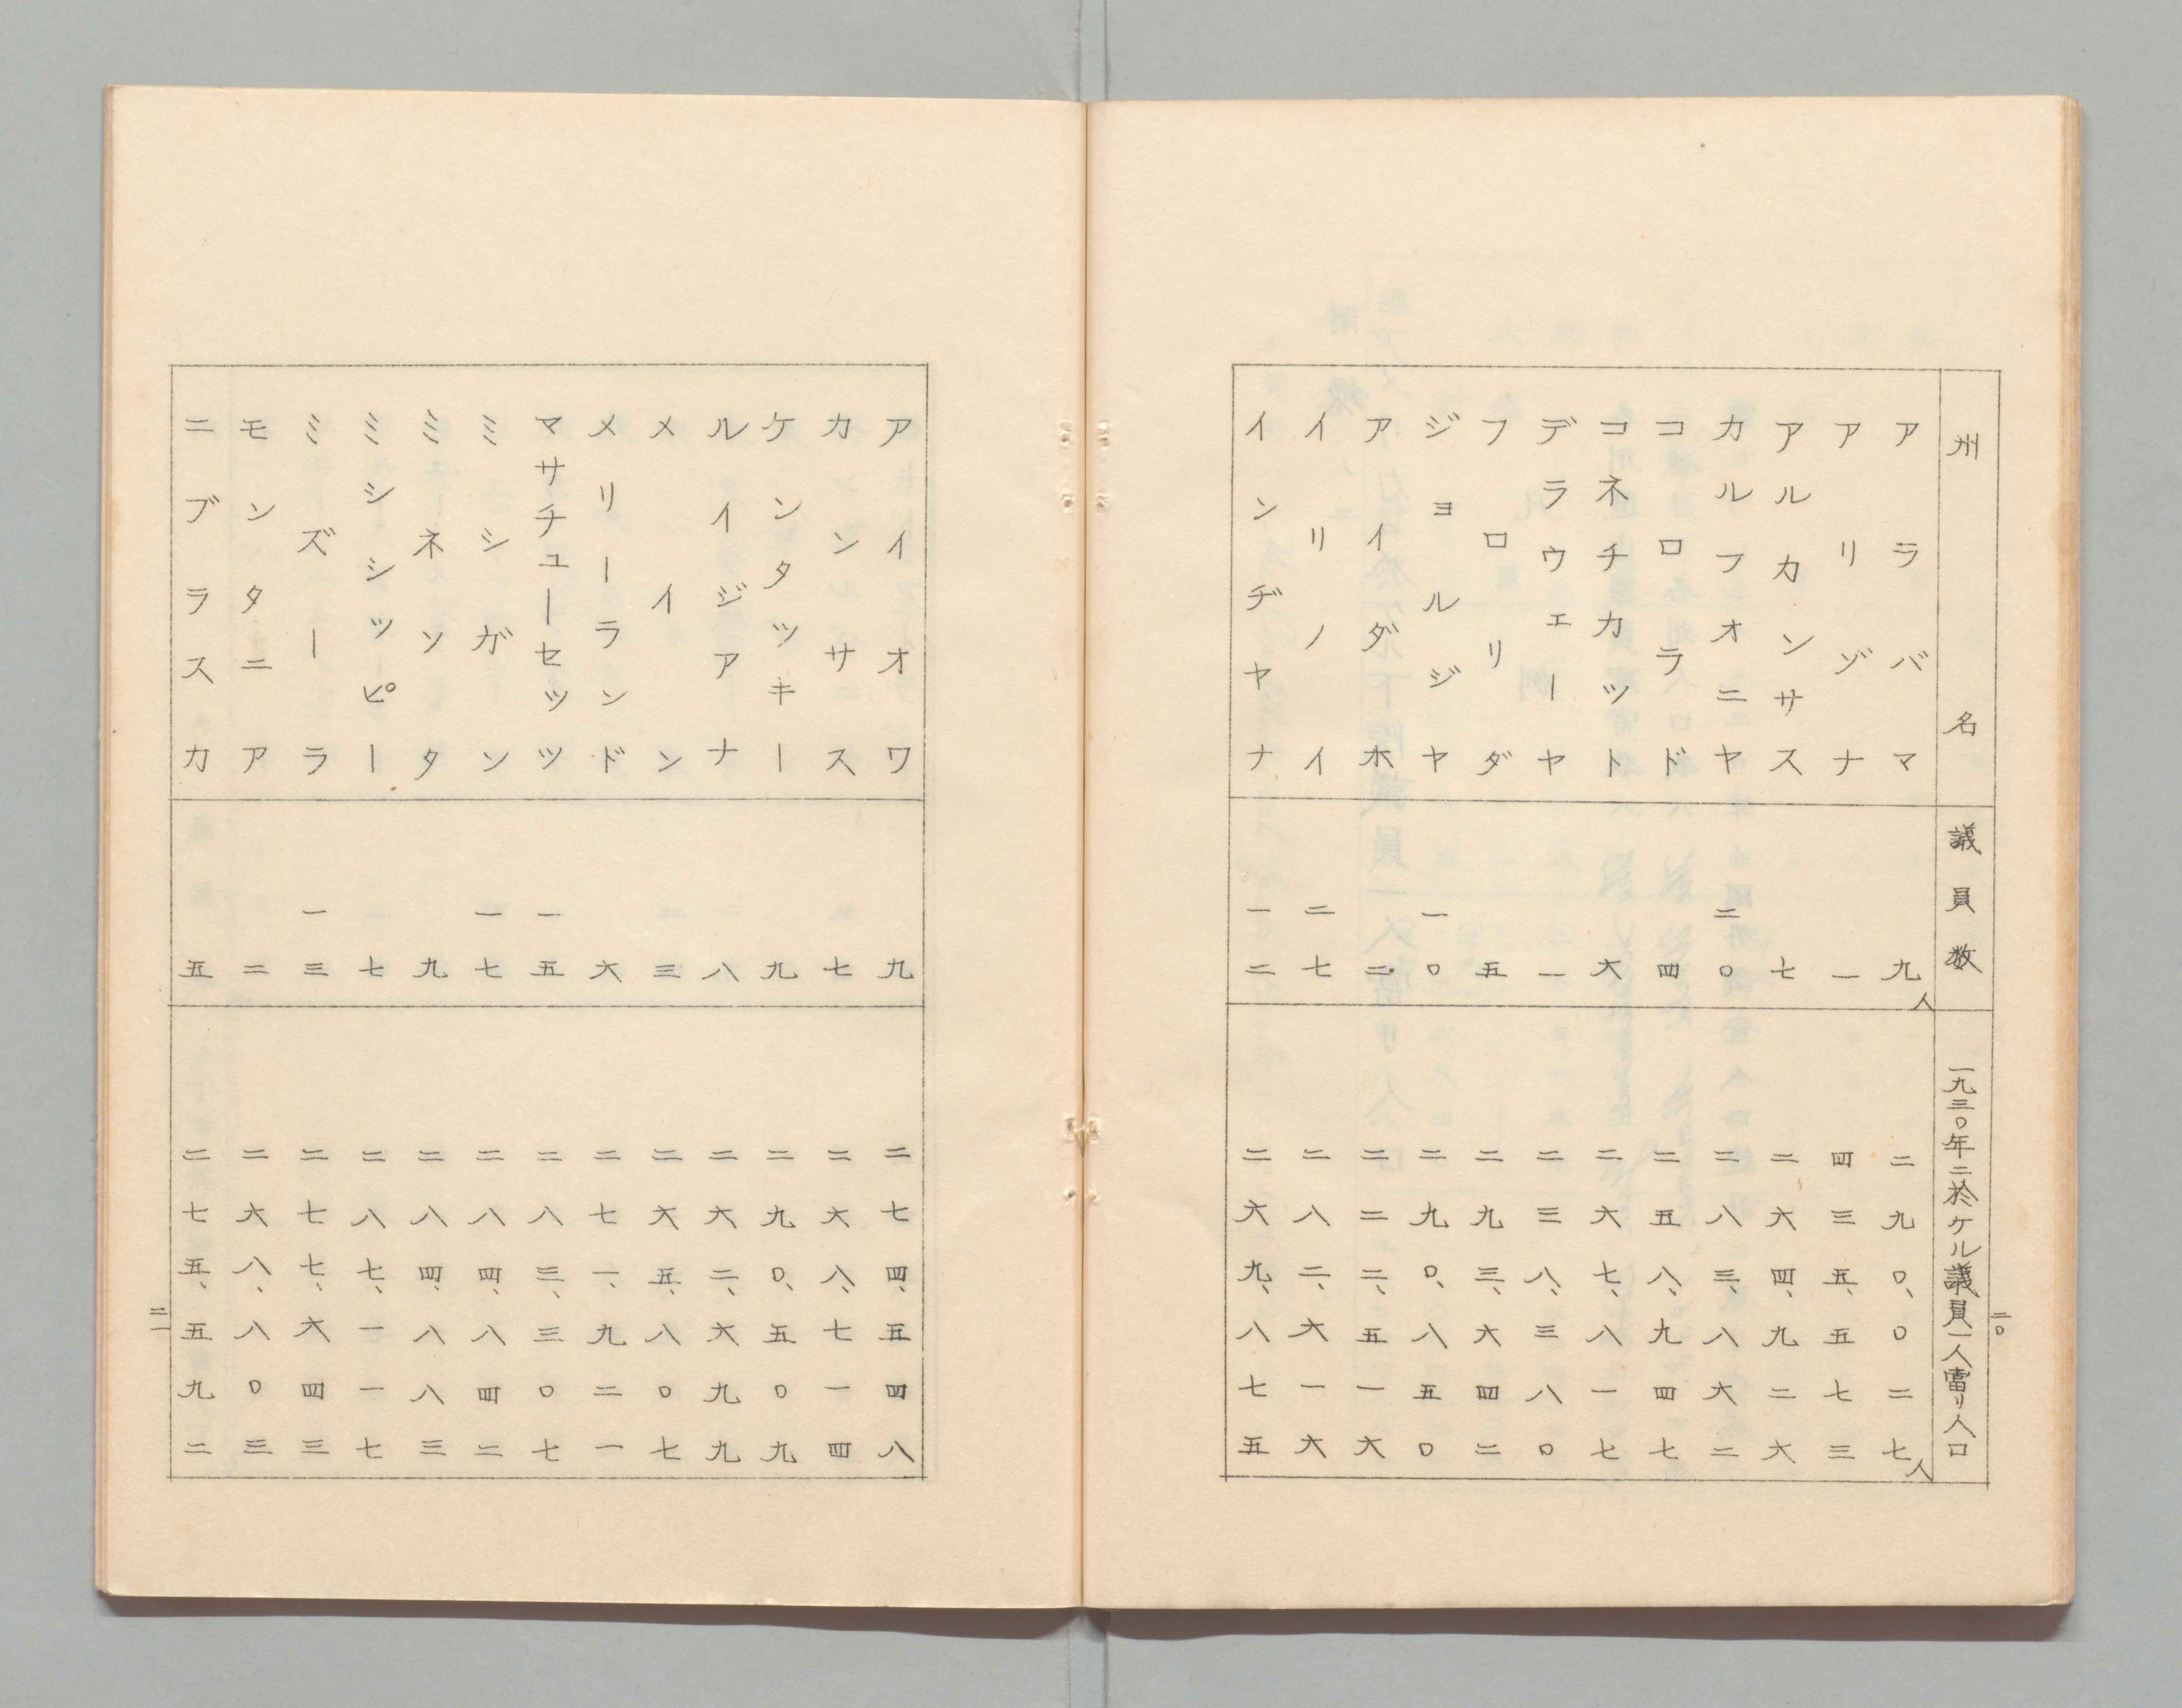 二〇
州名 議員数 一九三〇年ニ於ケル議員一人當リ人口
アラバマ 九人 二九〇、〇二七人
アリゾナ 一 四三五、五七三
アルカンサス 七 二六四、九二六
カルフオニヤ 二〇 二八三、八六二
コロラド 四 二五八、九四七
コネチカツト 六 二六七、八一七
デラウェーヤ 一 二三八、三八〇
フロリダ 五 二九三、六四二
ジョルジヤ 一〇 二九〇、八五〇
アイダホ 二 二二二、五一六
イリノイ 二七 二八二、六一六
インヂヤナ 一二 二六九、八七五
アイオワ 九 二七四、五四八
カンサス 七 二六八、七一四
ケンタツキー 九 二九〇、五〇九
ルイジアナ 八 二六二、六九九
メイン 三 二六五、八〇七
メリーランド 六 二七一、九二一
マサチューセツツ 一五 二八三、三〇七
ミシガン 一七 二八四、八四二
ミネソタ 九 二八四、八八三
ミシシッピー 七 二八七、一一七
ミズーラ 一三 二七七、六四三
モンタニア 二 二六八、八〇三
ニブラスカ 五 二七五、五九二
二一